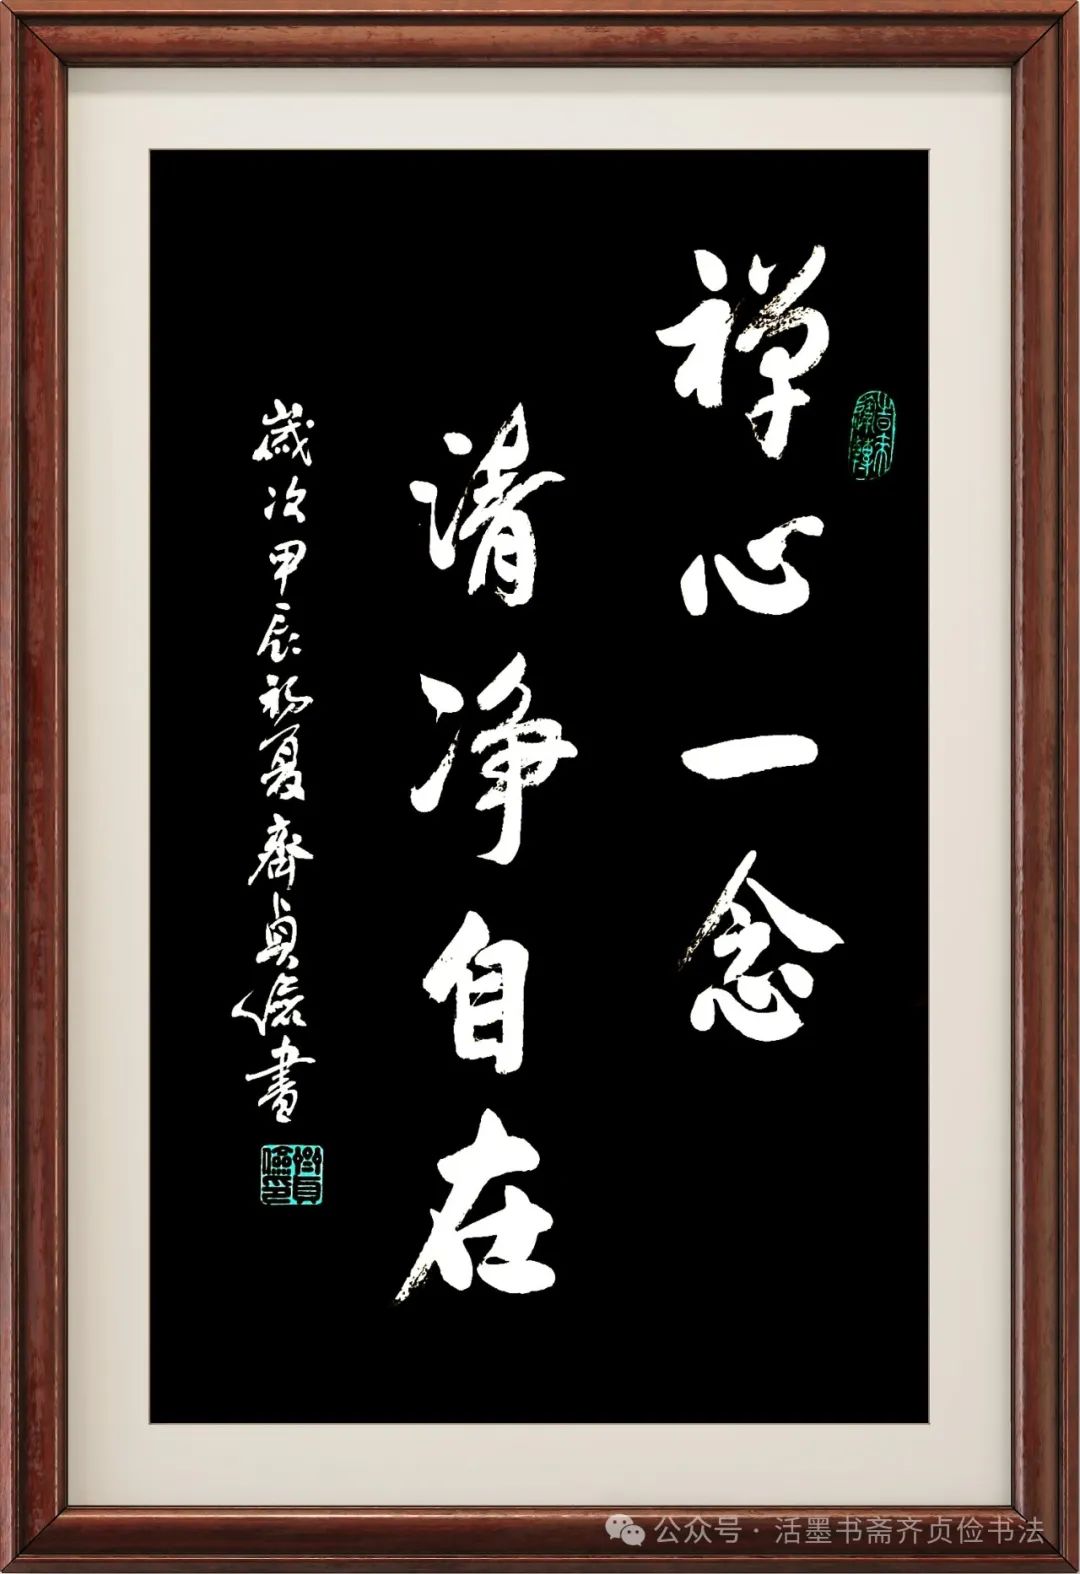 禅心一念
清净自在
歲次甲辰初夏齊貞儉書
公众号·活墨书斋齐贞俭书法